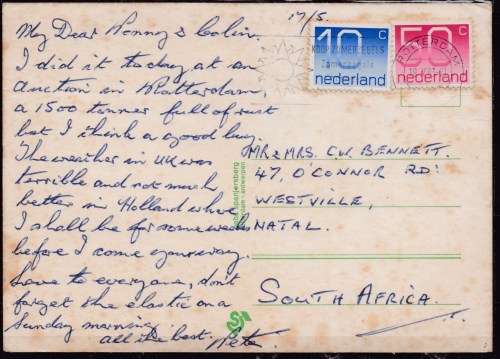 17/5.
My Dear Nonny & Colin.
I did it today at an
auction in Rotterdam,
a 1500 tonner full of rust
but I think a good buy.
The weather in UK was
terrible and not much
better in Holland where
I shall be for some weeks
before I come your way.
Love to everyone, don't
forget the elastic on a
Sunday morning
all the best. Pete.
10 c
nederland
50 c
nederland
KOOP ZOMERZEGELS
ROTTERDAM
MR & MRS. C.W. BENNETT.
47, O'CONNOR RD.
WESTVILLE,
NATAL.
SOUTH AFRICA.